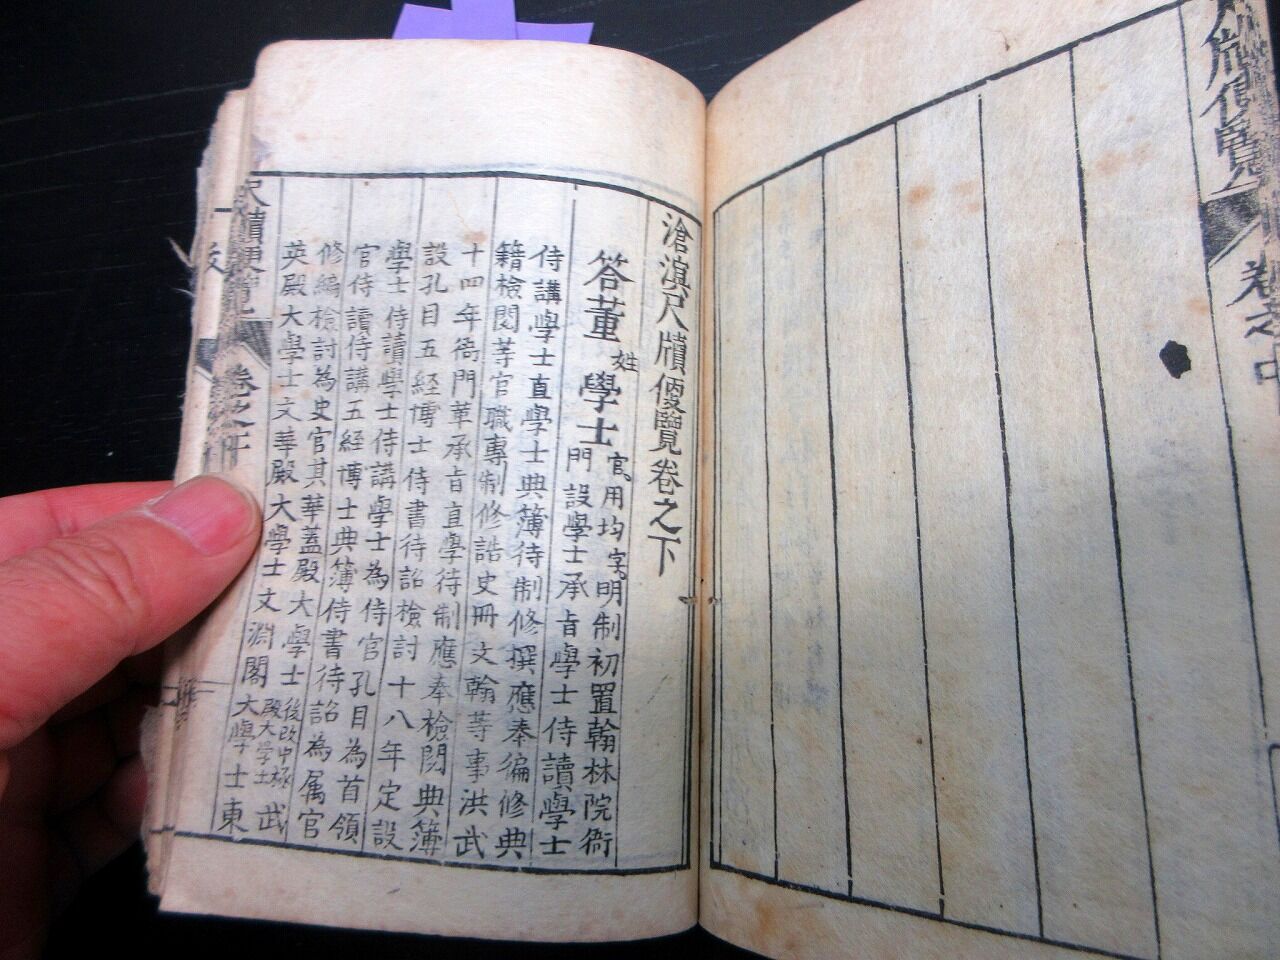 尺牘便覽 卷之中
滄溟尺牘便覽卷之下
答董姓學士官用均字明制初置翰林院衙
門設學士承旨學士侍讀學士
侍講學士直學士典簿待制修撰應奉編修典
籍檢閱等官職專制修誥史冊文翰等事洪武
十四年衙門革承旨直學待制應奉檢閱典簿
設孔目五経博士侍書待詔檢討十八年定設
學士侍讀學士侍講學士為侍官孔目為首領
官侍讀侍講五経博士典簿侍書待詔為属官
修編檢討為史官其華蓋殿大學士後改中極殿大学士武
英殿大學士文華殿大學士文淵閣大學士東
尺牘便覽 卷之下